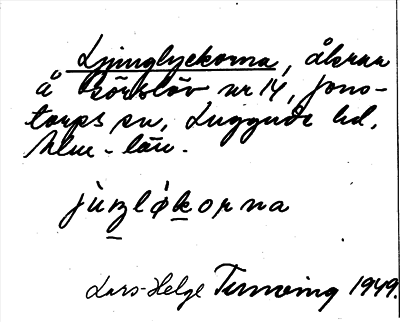 Ljunglyckorna, åkrar
å Görslöv nr 14, Jons-
torps sn, Luggude hd,
Mlm-län.
jùŋløkorna
Lars-Helge Turnving 1949.